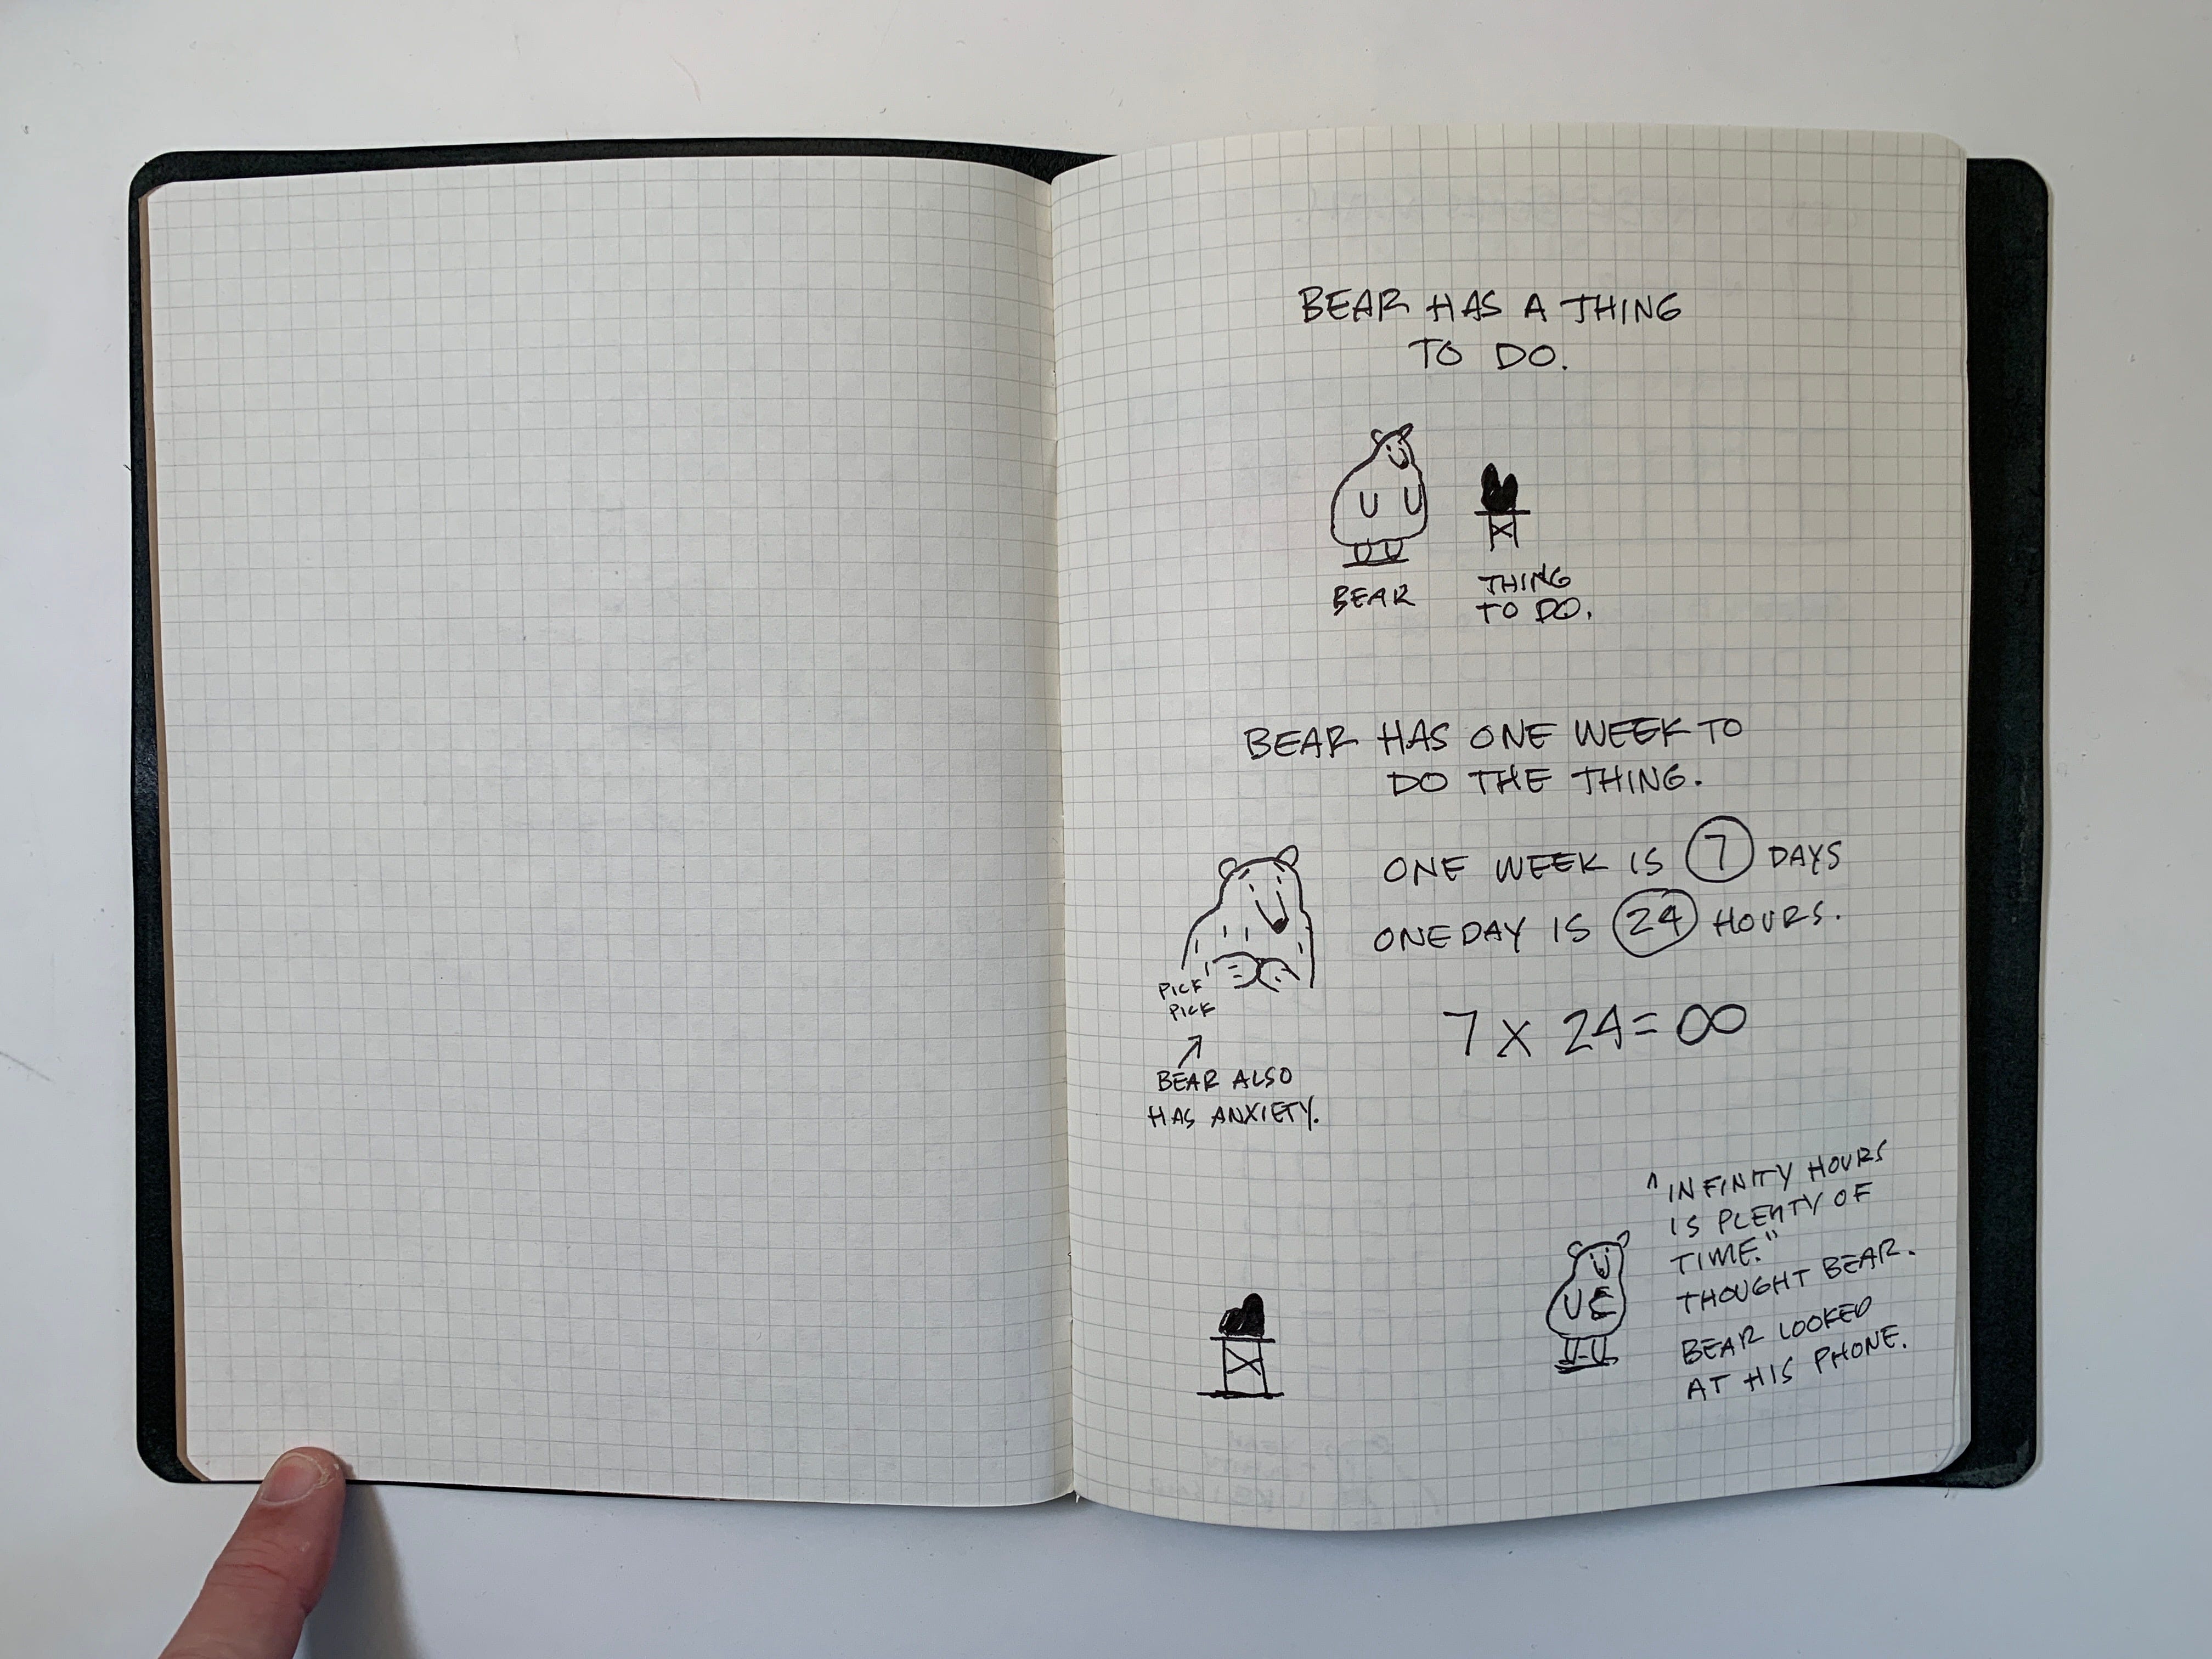 BEAR HAS A THING
TO DO.
BEAR
THING
TO DO.
BEAR HAS ONE WEEK TO
DO THE THING.
ONE WEEK IS 7 DAYS
ONE DAY IS 24 HOURS.
PICK
PICK
BEAR ALSO
HAS ANXIETY.
7 x 24 = ∞
"INFINITY HOURS
IS PLENTY OF
TIME."
THOUGHT BEAR.
BEAR LOOKED
AT HIS PHONE.